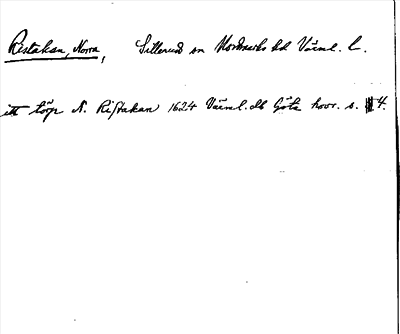 Ristakan, Norra, Silleruds sn Nordmarks hd Värml. l.
ett torp N. Ristakan 1624 Värml. db Göta hovr. s. 4.